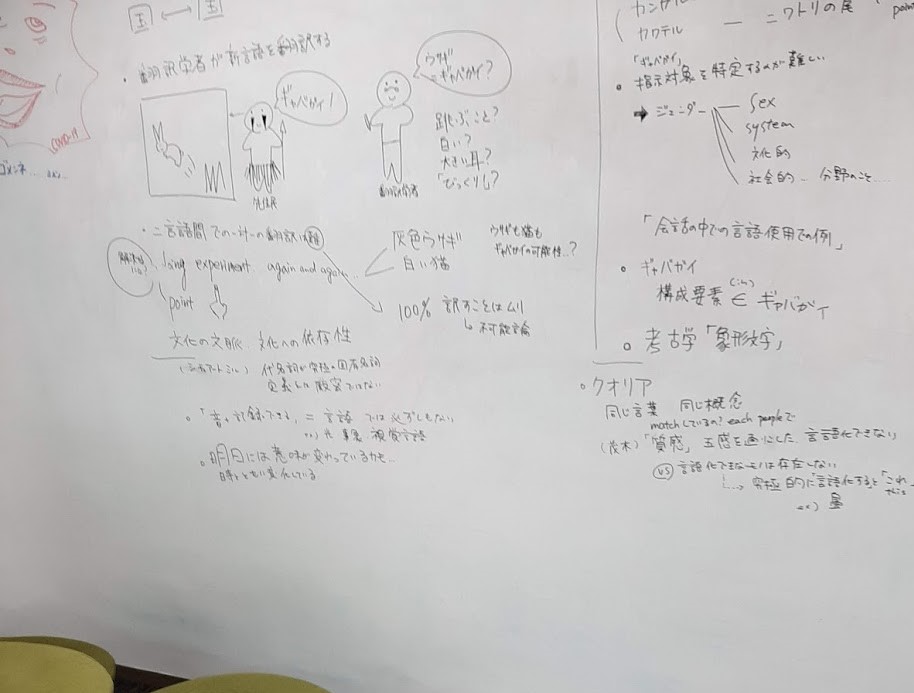 国 ↔ 国
・翻訳学者が新言語を翻訳する
ギャバガイ!
ウサギ
=ギャバガイ?
跳ぶこと?
白い?
大きい耳?
「びっくりした?
翻訳学者
・二言語間での一対一の翻訳は難
灰色ウサギ
白い猫
ウサギも猫も
ギャバガイの可能性..?
doing experiment again and again...
point
100% 訳すことはムリ
↳ 不可能
文化の文脈、文化への依存性
代名詞が究極の固有名詞
・「音で記録できる」= 言語 では必ずしもない
視覚言語
・明日には意味が変わっているかも...
時とともに変化している
カクテル — ニワトリの尾
point
「ギャバガイ」
・指示対象を特定するのが難しい
→ ジェンダー
sex
system
文化的
社会的 — 分野のこと....
「会話の中での言語使用での例」
・ギャバガイ
構成要素 ∈ ギャバガイ
(in)
・考古学「象形文字」
・クオリア
同じ言葉 同じ概念
matchしているの? each peopleで
(茂木)「質感」五感を通にした、言語化できない
VS 言語化できないモノは存在しない
究極的に「言語化する」と「これ
this
ex) 量